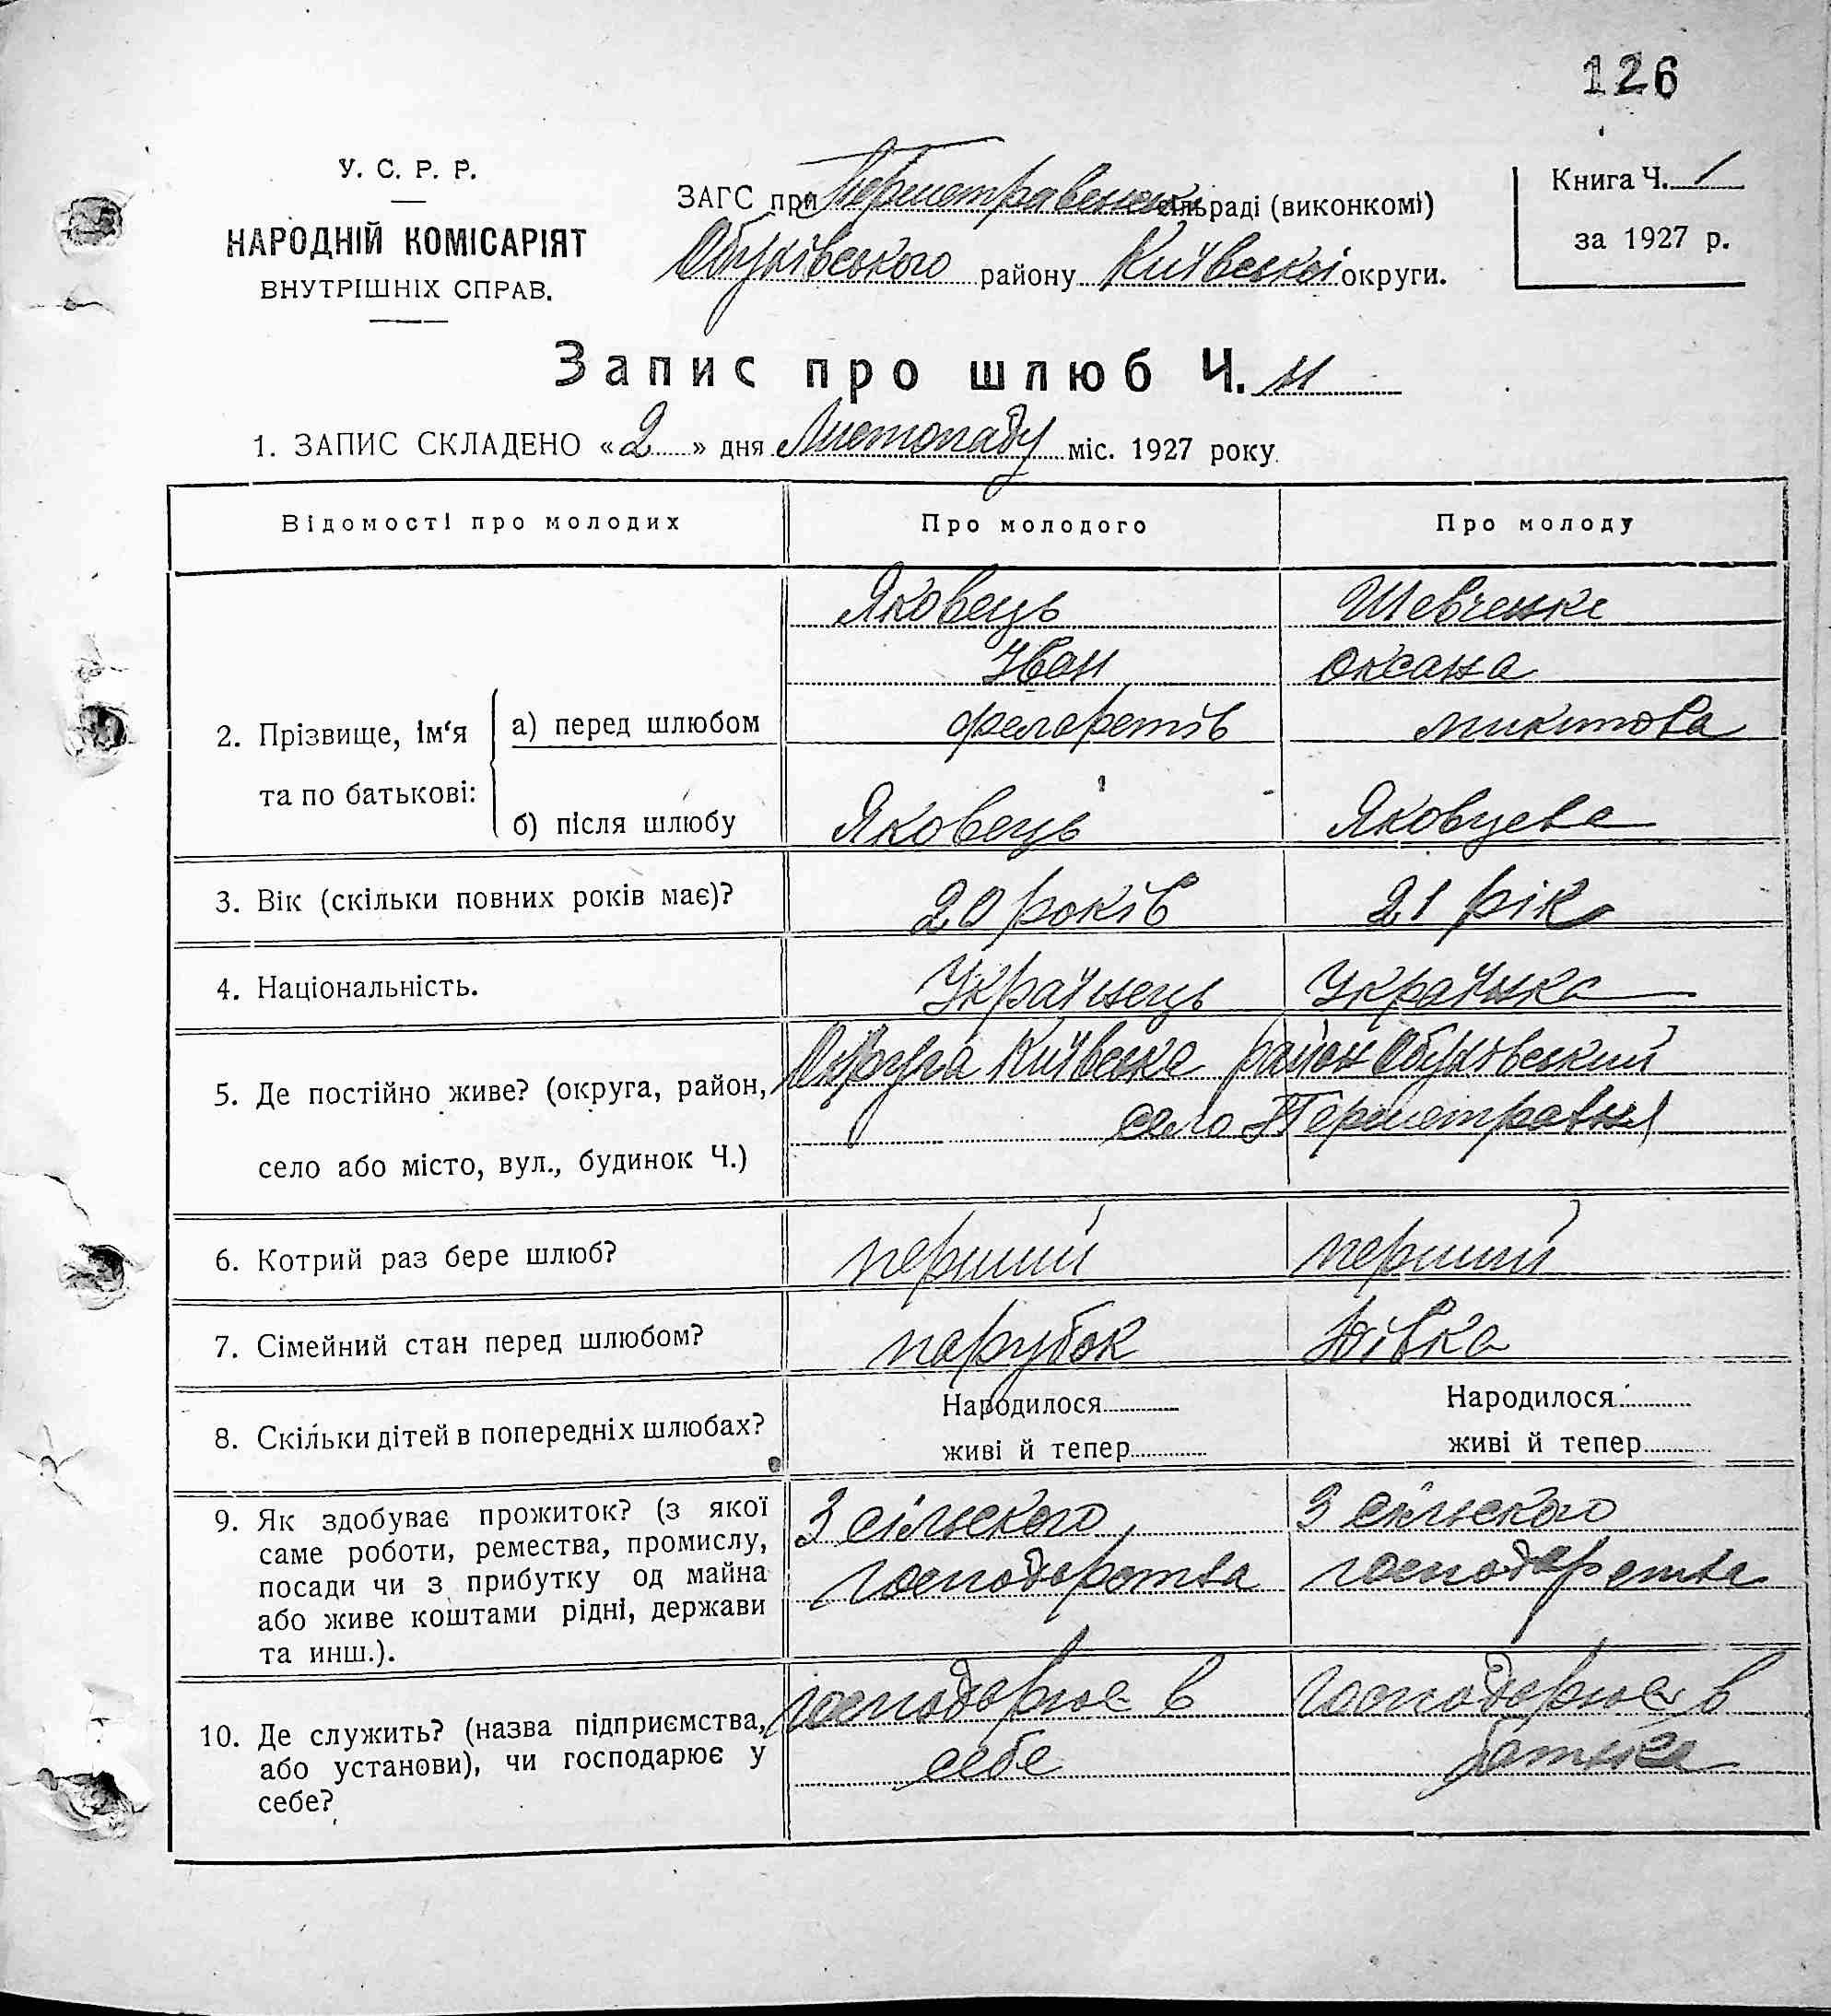 126
У. С. Р. Р.
НАРОДНІЙ КОМІСАРІЯТ
ВНУТРІШНІХ СПРАВ.
ЗАГС при Першетравенськ сільраді (виконкомі)
Обухівського району Київської округи.
Книга Ч. 1
за 1927 р.
Запис про шлюб Ч. 11
1. ЗАПИС СКЛАДЕНО «2» дня Листопаду міс. 1927 року
Відомості про молодих Про молодого Про молоду
2. Прізвище, ім'я та по батькові:
а) перед шлюбом
Яковець Шевченко
Іван Оксана
Филаретів Микитова
б) після шлюбу Яковець Яковцева
3. Вік (скільки повних років має)? 20 років 21 рік
4. Національність. Українець Українка
5. Де постійно живе? (округа, район,
село або місто, вул., будинок Ч.)
Округа Київська район Обухівський
село Першетравня
6. Котрий раз бере шлюб? перший перший
7. Сімейний стан перед шлюбом? парубок Дівка
8. Скільки дітей в попередніх шлюбах?
Народилося Народилося
живі й тепер живі й тепер
9. Як здобуває прожиток? (з якої
саме роботи, ремества, промислу,
посади чи з прибутку од майна
або живе коштами рідні, держави
та инш.).
З сільского З сільского
господарства господарства
10. Де служить? (назва підприємства,
або установи), чи господарює у
себе?
господарює в господарює в
себе батька